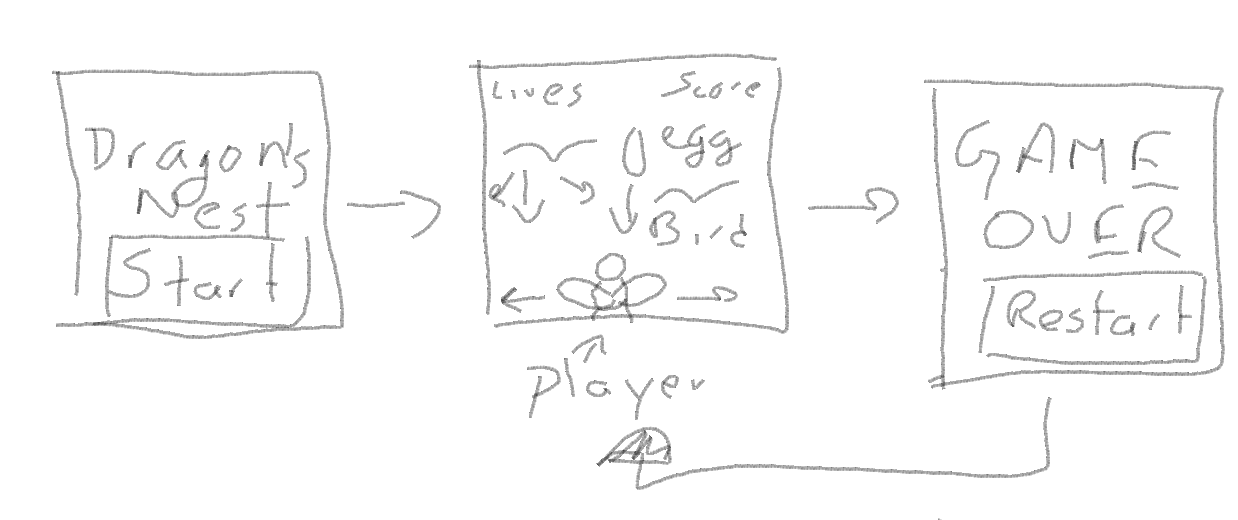 Dragon's
Nest
Start
Lives
Score
egg
Bird
Player
GAME
OVER
Restart